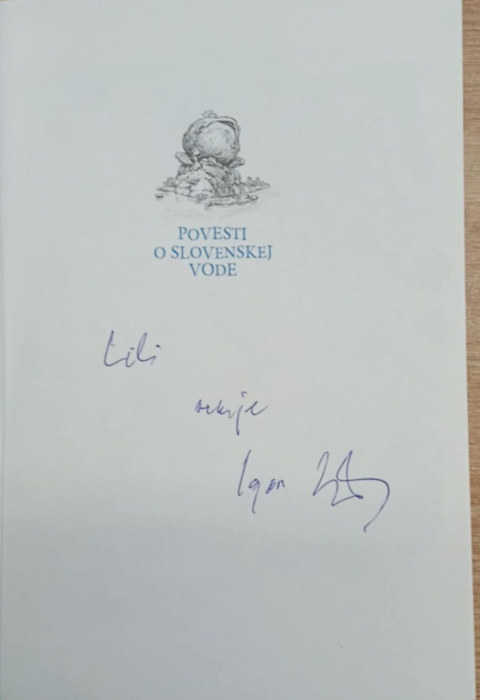 POVESTI
O SLOVENSKEJ
VODE
Lili
venuje
Igor